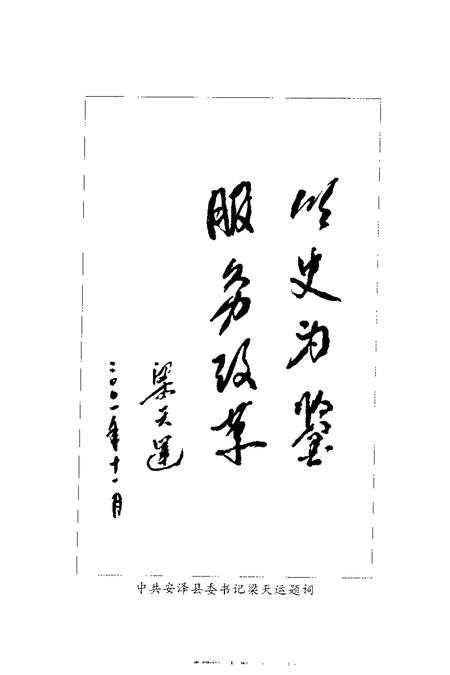 以史为鉴
服务改革
梁天运
二〇〇一年十一月
中共安泽县委书记梁天运题词